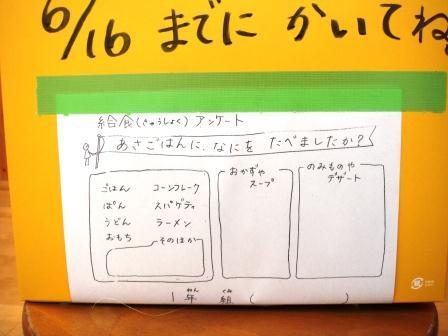 6/16 までに かいてね
給食(きゅうしょく) アンケート
あさごはんに、なにを たべましたか?
ごはん コーンフレーク
ぱん スパゲティ
うどん ラーメン
おもち そのほか
おかずや
スープ
のみものや
デザート
1年(ねん) 組(くみ) (